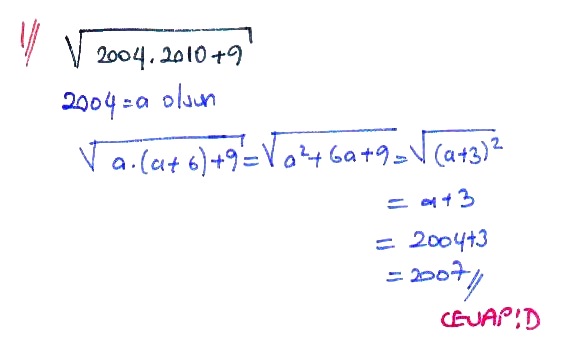 1//
√2004.2010+9
2004=a olsun
√a.(a+6)+9=√a²+6a+9=√(a+3)²
= a+3
= 2004+3
= 2007//
CEVAP:D